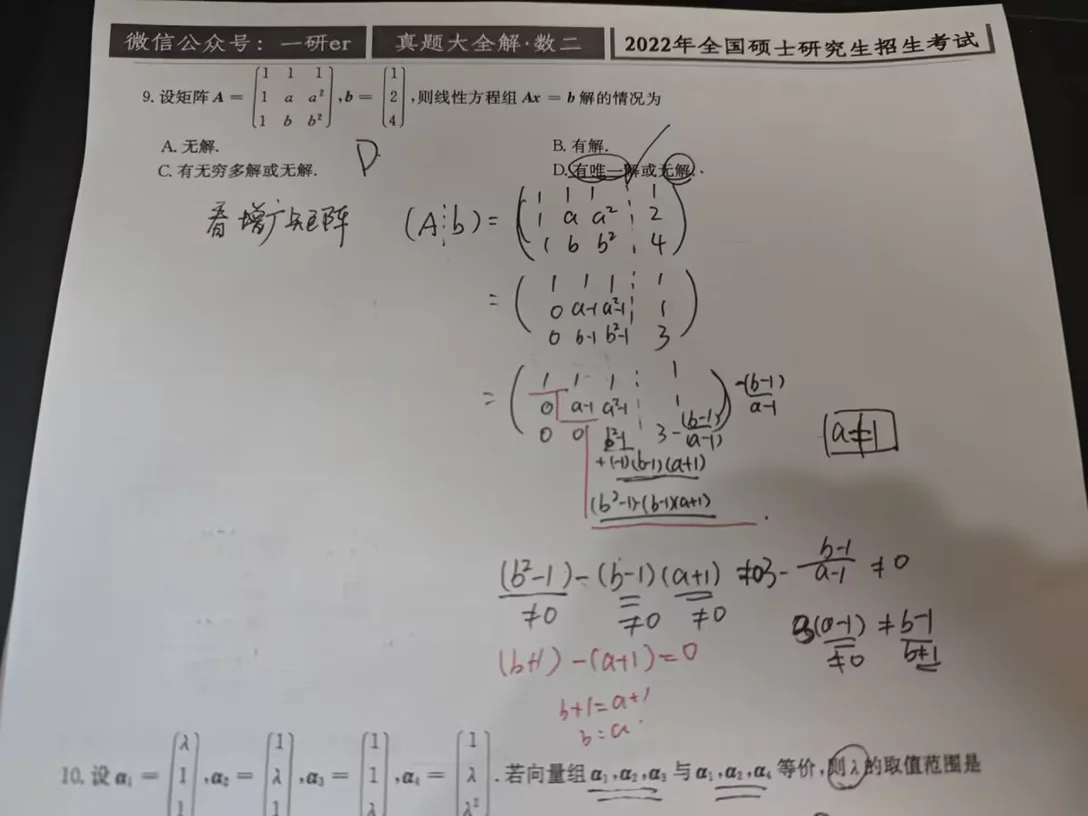 微信公众号：一研er 真题大全解·数二 2022年全国硕士研究生招生考试
9. 设矩阵 A = (1 1 1; 1 a a²; 1 b b²), b = (1; 2; 4), 则线性方程组 Ax = b 解的情况为
A. 无解. B. 有解.
D.
C. 有无穷多解或无解. D. 有唯一解或无解.
看增广矩阵 (A⋮b) =
1 1 1 ⋮ 1
1 a a² ⋮ 2
1 b b² ⋮ 4
=
1 1 1 ⋮ 1
0 a-1 a²-1 ⋮ 1
0 b-1 b²-1 3
=
1 1 1 ⋮ 1
0 a-1 a²-1 ⋮ 1
-(b-1)/a-1
0 0 b²-1 3-(b-1)/(a-1)
a≠1
+(-1)(b-1)(a+1)
(b²-1)-(b-1)(a+1)
(b²-1)-(b-1)(a+1) ≠0
3-(b-1)/(a-1) ≠0
≠0 ≠0 ≠0
3(a-1) ≠ b-1
≠0 b≠1
(b+1)-(a+1)=0
b+1=a+1
b=a
10. 设 α₁ = (λ; 1; 1), α₂ = (1; λ; 1), α₃ = (1; 1; λ), α₄ = (1; λ; λ²). 若向量组 α₁,α₂,α₃ 与 α₁,α₂,α₄ 等价, 则λ的取值范围是